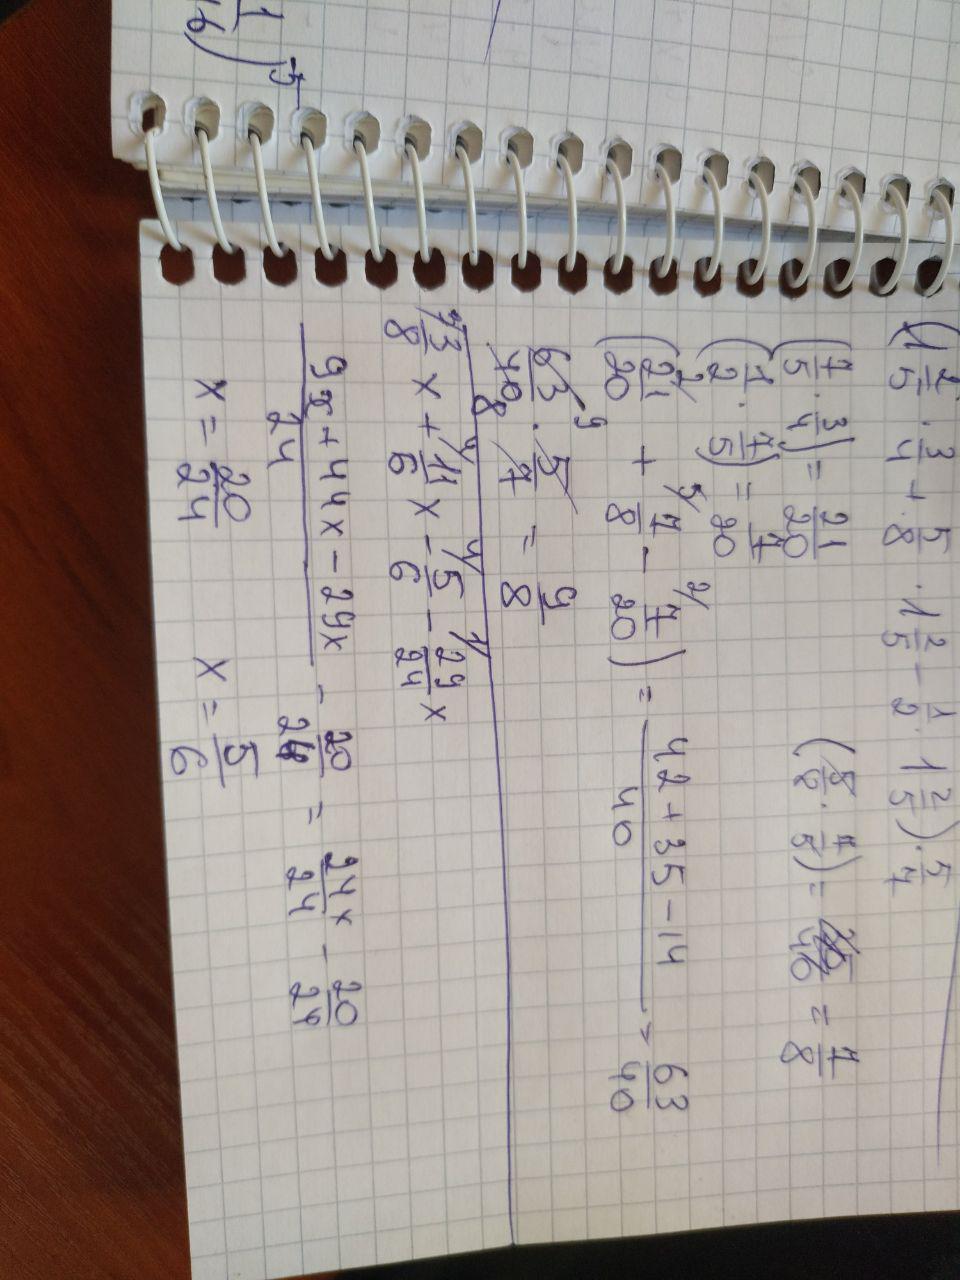 (1 2/5 · 3/4 + 5/8 · 1 2/5 - 1/2 · 1 2/5) · 5/7
(7/5 · 3/4) = 21/20 (5/8 · 7/5) = = 7/8
(1/2 · 7/5) = 7/20
(21/20 + 7/8 - 7/20) = (42 + 35 - 14)/40 = 63/40
63/40 · 5/7 = 9/8
3/8 x + 11/6 x - 5/6 - 29/24 x
(9x + 44x - 29x)/24 - 20/24 = 24x/24 - 20/24
x = 20/24 x = 5/6